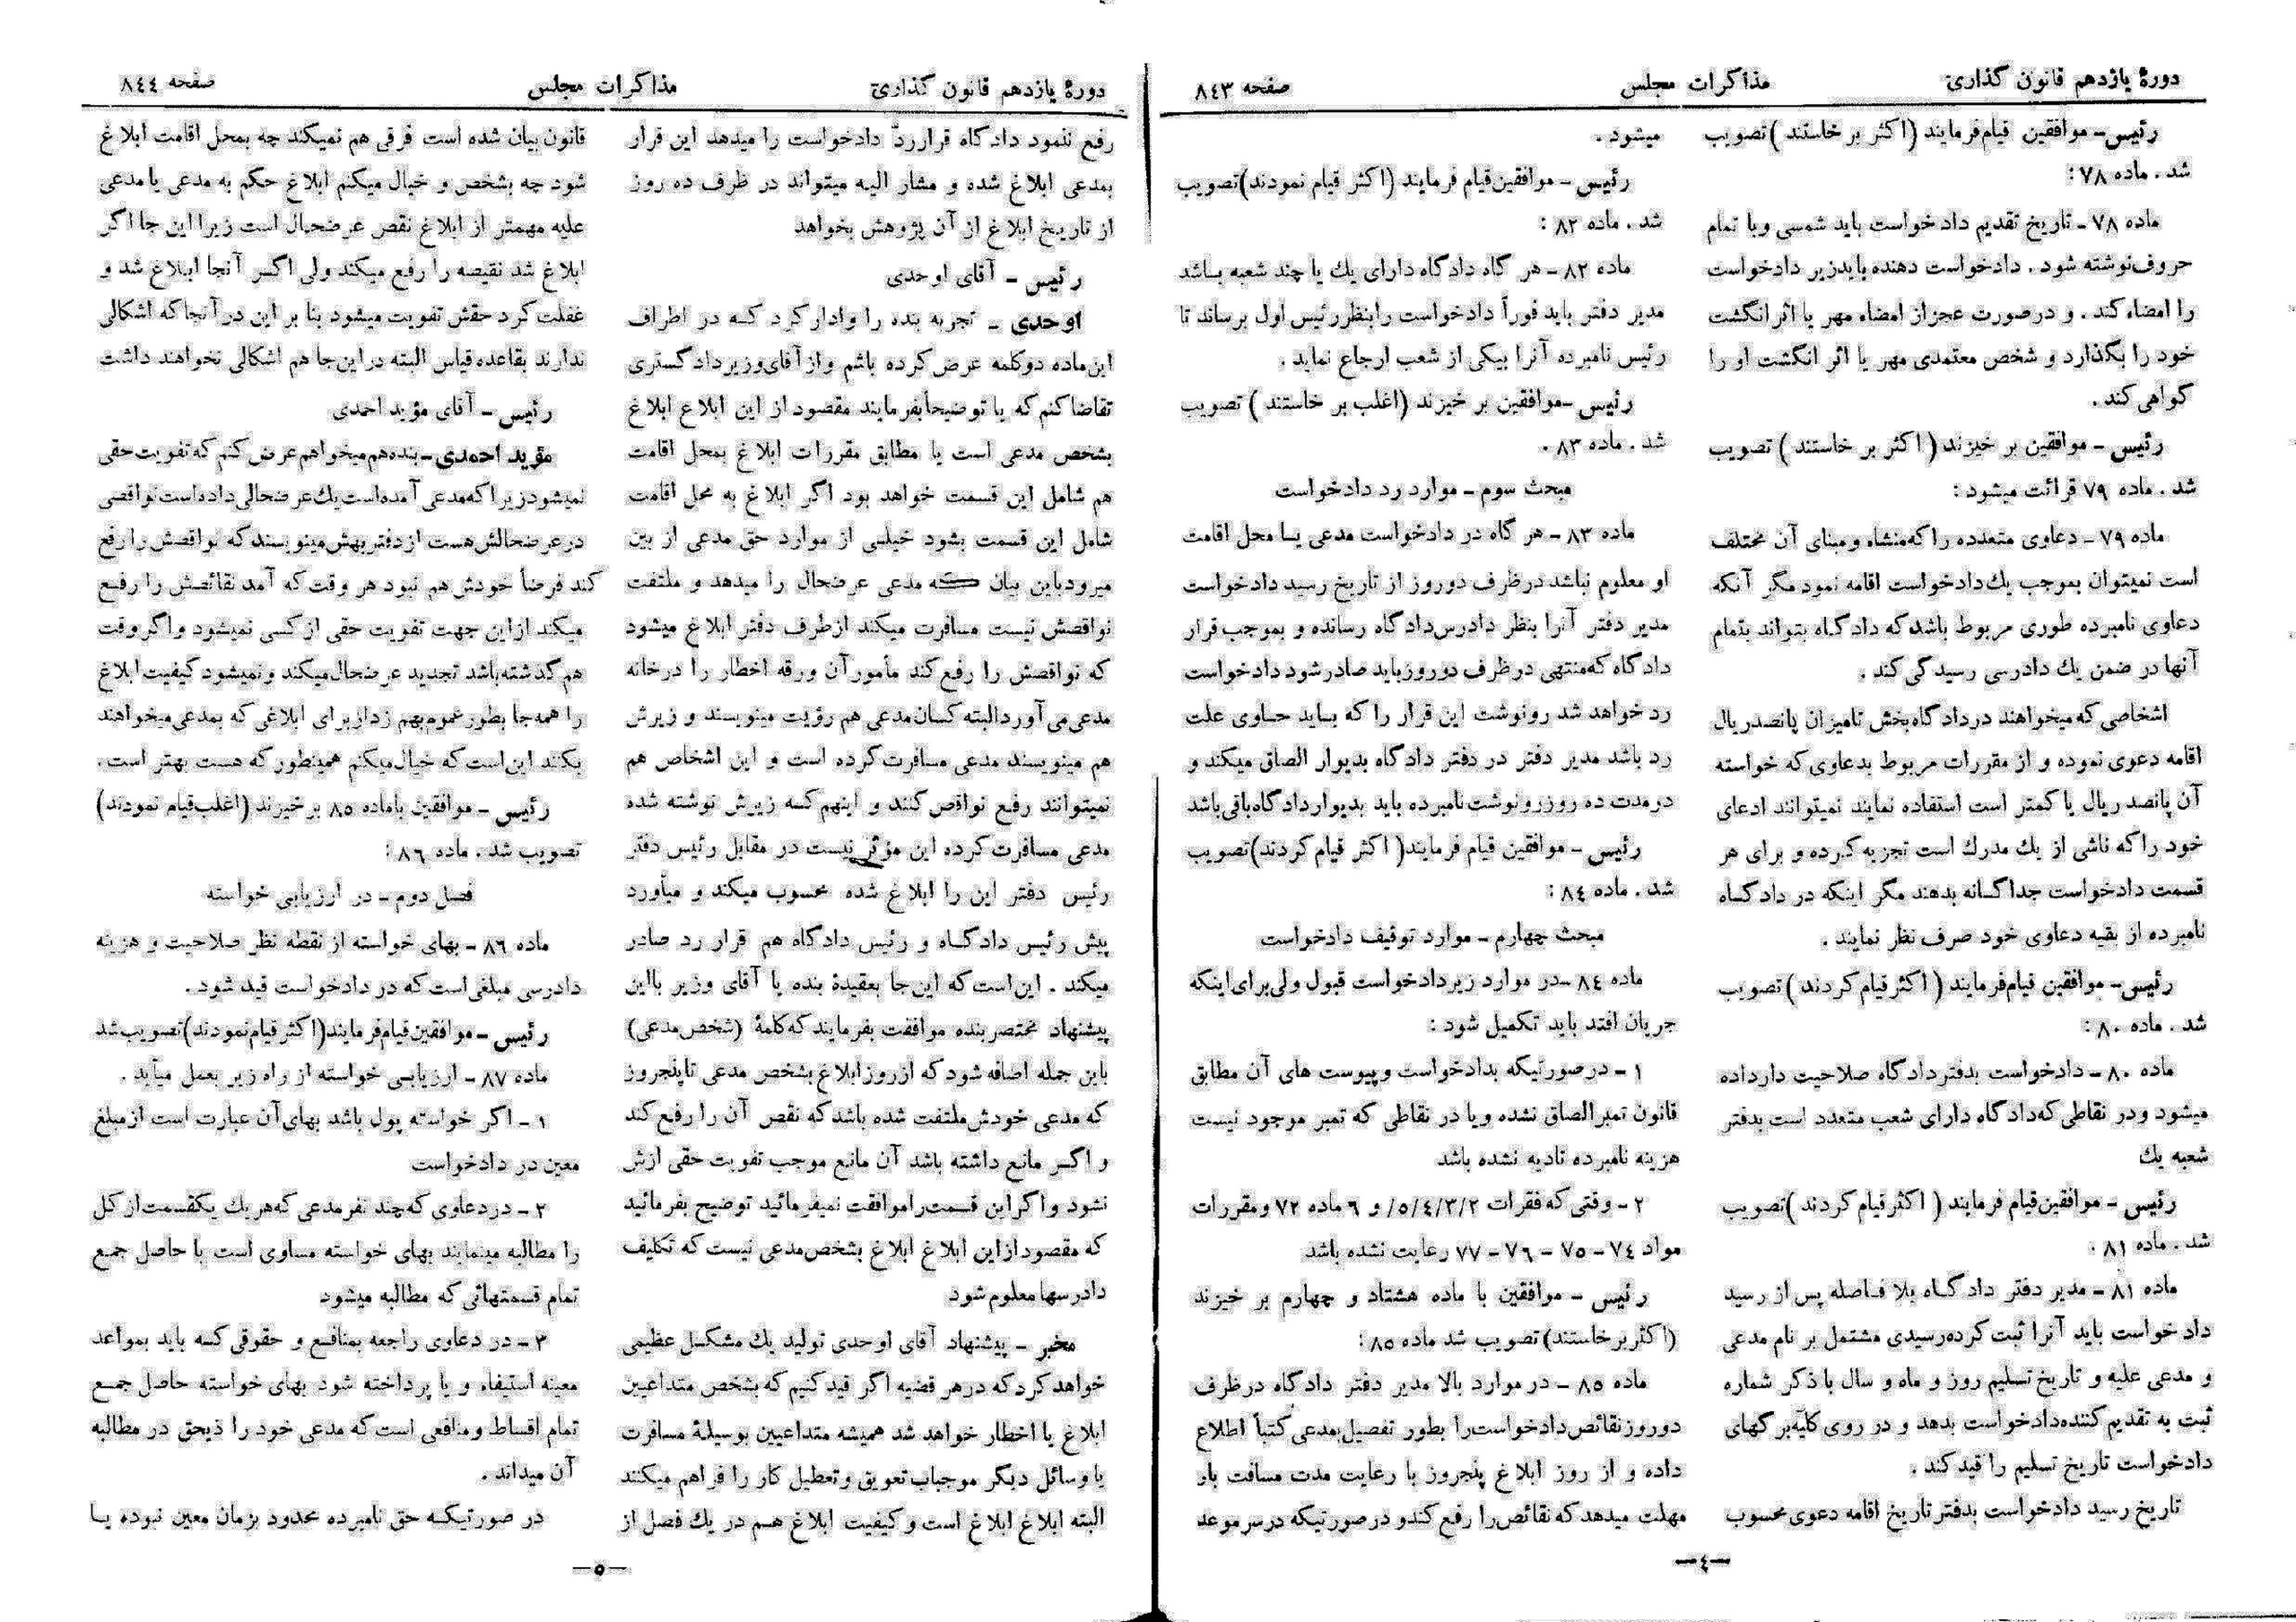 دورهٔ یازدهم قانون گذاری
مذاکرات مجلس
صفحه ۸٤۳
رئیس- موافقین قیام فرمایند (اکثر بر خاستند) تصویب
شد . ماده ۷۸ :
ماده ۷۸ - تاریخ تقدیم داد خواست باید شمسی و با تمام
حروف نوشته شود . دادخواست دهنده باید زیر دادخواست
را امضاء کند . و در صورت عجز از امضاء مهر یا اثر انگشت
خود را بگذارد و شخص معتمدی مهر یا اثر انگشت او را
گواهی کند .
رئیس - موافقین بر خیزند ( اکثر بر خاستند ) تصویب
شد . ماده ۷۹ قرائت میشود :
ماده ۷۹ - دعاوی متعدده را که منشاء و مبنای آن مختلف
است نمیتوان بموجب یك دادخواست اقامه نمود مگر آنکه
دعاوی نامبرده طوری مربوط باشد که دادگاه بتواند بتمام
آنها در ضمن یك دادرسی رسیدگی کند .
اشخاصی که میخواهند در دادگاه بخش تا میزان پانصد ریال
اقامه دعوی نموده و از مقررات مربوط بدعاوی که خواسته
آن پانصد ریال یا کمتر است استفاده نمایند نمیتوانند ادعای
خود را که ناشی از یك مدرك است تجزیه کرده و برای هر
قسمت دادخواست جداگانه بدهند مگر اینکه در دادگاه
نامبرده از بقیه دعاوی خود صرف نظر نمایند .
رئیس- موافقین قیام فرمایند ( اکثر قیام کردند ) تصویب
شد . ماده ۸۰ :
ماده ۸۰ - دادخواست بدفتر دادگاه صلاحیت دار داده
میشود و در نقاطی که دادگاه دارای شعب متعدد است بدفتر
شعبه یك
رئیس - موافقین قیام فرمایند ( اکثر قیام کردند ) تصویب
شد . ماده ۸۱ .
ماده ۸۱ - مدیر دفتر دادگاه بلا فاصله پس از رسید
داد خواست باید آنرا ثبت کرده رسیدی مشتمل بر نام مدعی
و مدعی علیه و تاریخ تسلیم روز و ماه و سال با ذکر شماره
ثبت به تقدیم کننده دادخواست بدهد و در روی کلیه برگهای
دادخواست تاریخ تسلیم را قید کند .
تاریخ رسید دادخواست بدفتر تاریخ اقامه دعوی محسوب
میشود .
رئیس - موافقین قیام فرمایند (اکثر قیام نمودند) تصویب
شد . ماده ۸۲ :
ماده ۸۲ - هر گاه دادگاه دارای یك یا چند شعبه باشد
مدیر دفتر باید فوراً دادخواست را بنظر رئیس اول برساند تا
رئیس نامبرده آنرا بیکی از شعب ارجاع نماید .
رئیس -موافقین بر خیزند (اغلب بر خاستند ) تصویب
شد . ماده ۸۳ .
مبحث سوم - موارد رد دادخواست
ماده ۸۳ - هر گاه در دادخواست مدعی یا محل اقامت
او معلوم نباشد در ظرف دو روز از تاریخ رسید دادخواست
مدیر دفتر آنرا بنظر دادرس دادگاه رسانده و بموجب قرار
دادگاه که منتهی در ظرف دو روز باید صادر شود دادخواست
رد خواهد شد رونوشت این قرار را که باید حاوی علت
رد باشد مدیر دفتر در دفتر دادگاه بدیوار الصاق میکند و
در مدت ده روز رونوشت نامبرده باید بدیوار دادگاه باقی باشد
رئیس - موافقین قیام فرمایند( اکثر قیام کردند) تصویب
شد . ماده ۸٤ :
مبحث چهارم - موارد توقیف دادخواست
ماده ۸٤ -در موارد زیر دادخواست قبول ولی برای اینکه
جریان افتد باید تکمیل شود :
۱ - در صورتیکه بدادخواست و پیوست های آن مطابق
قانون تمبر الصاق نشده و یا در نقاطی که تمبر موجود نیست
هزینه نامبرده تادیه نشده باشد
۲ - وقتی که فقرات ۵/٤/۳/۲/ و ٦ ماده ۷۲ و مقررات
مواد ۷٤ - ۷۵ - ۷٦ - ۷۷ رعایت نشده باشد
رئیس - موافقین با ماده هشتاد و چهارم بر خیزند
(اکثر بر خاستند) تصویب شد ماده ۸۵ :
ماده ۸۵ - در موارد بالا مدیر دفتر دادگاه در ظرف
دو روز نقائص دادخواست را بطور تفصیل بمدعی کتباً اطلاع
داده و از روز ابلاغ پنجروز با رعایت مدت مسافت باو
مهلت میدهد که نقائص را رفع کند و در صورتیکه در سر موعد
-٤-
دورهٔ یازدهم قانون گذاری
مذاکرات مجلس
صفحه ۸٤٤
رفع ننمود دادگاه قرار ردّ دادخواست را میدهد این قرار
بمدعی ابلاغ شده و مشار الیه میتواند در ظرف ده روز
از تاریخ ابلاغ از آن پژوهش بخواهد
رئیس - آقای اوحدی
اوحدی - تجربه بنده را وادار کرد که در اطراف
این ماده دو کلمه عرض کرده باشم و از آقای وزیر دادگستری
تقاضا کنم که یا توضیحاً بفرمایند مقصود از این ابلاغ ابلاغ
بشخص مدعی است یا مطابق مقررات ابلاغ بمحل اقامت
هم شامل این قسمت خواهد بود اگر ابلاغ به محل اقامت
شامل این قسمت بشود خیلی از موارد حق مدعی از بین
میرود باین بیان که مدعی عرضحال را میدهد و ملتفت
نواقصش نیست مسافرت میکند از طرف دفتر ابلاغ میشود
که نواقصش را رفع کند مأمور آن ورقه اخطار را در خانه
مدعی می آورد البته کسان مدعی هم رؤیت مینویسند و زیرش
هم مینویسند مدعی مسافرت کرده است و این اشخاص هم
نمیتوانند رفع نواقص کنند و اینهم که زیرش نوشته شده
مدعی مسافرت کرده این مؤثر نیست در مقابل رئیس دفتر
رئیس دفتر این را ابلاغ شده محسوب میکند و میآورد
پیش رئیس دادگاه و رئیس دادگاه هم قرار رد صادر
میکند . این است که این جا بعقیدهٔ بنده یا آقای وزیر بااین
پیشنهاد مختصر بنده موافقت بفرمایند که کلمهٔ (شخص مدعی)
باین جمله اضافه شود که از روز ابلاغ بشخص مدعی تا پنجروز
که مدعی خودش ملتفت شده باشد که نقص آن را رفع کند
و اگر مانع داشته باشد آن مانع موجب تفویت حقی ازش
نشود و اگر این قسمت را موافقت نمیفرمائید توضیح بفرمائید
که مقصود از این ابلاغ ابلاغ بشخص مدعی نیست که تکلیف
دادرسها معلوم شود
مخبر - پیشنهاد آقای اوحدی تولید یك مشکل عظیمی
خواهد کرد که در هر قضیه اگر قید کنیم که بشخص متداعیین
ابلاغ یا اخطار خواهد شد همیشه متداعیین بوسیلهٔ مسافرت
یا وسائل دیگر موجبات تعویق و تعطیل کار را فراهم میکنند
البته ابلاغ ابلاغ است و کیفیت ابلاغ هم در یك فصل از
قانون بیان شده است فرقی هم نمیکند چه بمحل اقامت ابلاغ
شود چه بشخص و خیال میکنم ابلاغ حکم به مدعی یا مدعی
علیه مهمتر از ابلاغ نقص عرضحال است زیرا این جا اگر
ابلاغ شد نقیصه را رفع میکند ولی اگر آنجا ابلاغ شد و
غفلت کرد حقش تفویت میشود بنا بر این در آنجا که اشکالی
ندارند بقاعده قیاس البته در این جا هم اشکالی نخواهند داشت
رئیس - آقای مؤید احمدی
مؤید احمدی -بنده هم میخواهم عرض کنم که تفویت حقی
نمیشود زیرا که مدعی آمده است یك عرضحالی داده است نواقصی
در عرضحالش هست از دفتر بهش مینویسند که نواقصش را رفع
کند فرضاً خودش هم نبود هر وقت که آمد نقائصش را رفع
میکند از این جهت تفویت حقی از کسی نمیشود و اگر وقت
هم گذشته باشد تجدید عرضحال میکند و نمیشود کیفیت ابلاغ
را همه جا بطور عموم بهم زد از برای ابلاغی که بمدعی میخواهند
بکنند این است که خیال میکنم همینطور که هست بهتر است .
رئیس - موافقین با ماده ۸۵ بر خیزند (اغلب قیام نمودند)
تصویب شد . ماده ۸٦ :
فصل دوم - در ارزیابی خواسته
ماده ۸٦ - بهای خواسته از نقطه نظر صلاحیت و هزینه
دادرسی مبلغی است که در دادخواست قید شود .
رئیس - موافقین قیام فرمایند (اکثر قیام نمودند) تصویب شد
ماده ۸۷ - ارزیابی خواسته از راه زیر بعمل میآید .
۱ - اگر خواسته پول باشد بهای آن عبارت است از مبلغ
معین در دادخواست
۲ - در دعاوی که چند نفر مدعی که هر یك یکقسمت از کل
را مطالبه مینمایند بهای خواسته مساوی است با حاصل جمع
تمام قسمتهائی که مطالبه میشود
۳ - در دعاوی راجعه بمنافع و حقوقی که باید بمواعد
معینه استیفاء و یا پرداخته شود بهای خواسته حاصل جمع
تمام اقساط و منافعی است که مدعی خود را ذیحق در مطالبه
آن میداند .
در صورتیکه حق نامبرده محدود بزمان معین نبوده یا
-۵-